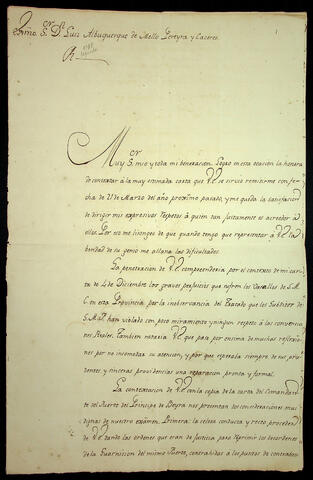 Exmo. Sor. Dn. Luis Albuquerque de Mello Pereyra y Caceres.
Muy Sor. mio y toda mi veneracion. Logro en esta ocasion la honrra
de contextar à la muy estimada carta que V.E. se sirvio remitirme con fe-
cha de 21 de Marzo del año proximo pasado, y me queda la satisfacion
de dirigir mis expresivos respetos à quien tan justamente es acreedor à
ellos. Por eso me lisongeo de que quando tengo que representar à V.E. la
bondad de su genio me allana las dificultades.
La penetracion de V.E. comprenderia por el contexto de mi carta
de 4 de Diciembre los graves perjuicios que sufren los Vasallos de S.M.
C. en esta Provincia por la inobservancia del Tratado que los Subditos de
S.M.F. han violado con poco miramiento y ningun respeto à las convencio-
nes Reales. Tambien notaria V.E. que pasé por encima de muchas reflexio-
nes por no incomodar su atencion, y por que esperaba siempre de sus pro-
dentes, y sinceras providencias una reparacion pronta y formal.
La contextacion de V.E. con la copia de la carta del Comandan-
te del Fuerte del Principe de Beyra nos presentan dos consideraciones muy
dignas de nuestro exámen. Primera: la celosa conducta y recto proceder
de V.E. dando las ordenes que eran de justicia para reprimir los desordenes
de la Guarnicion del mismo Fuerte, contrahidas à los puntos de contraban-